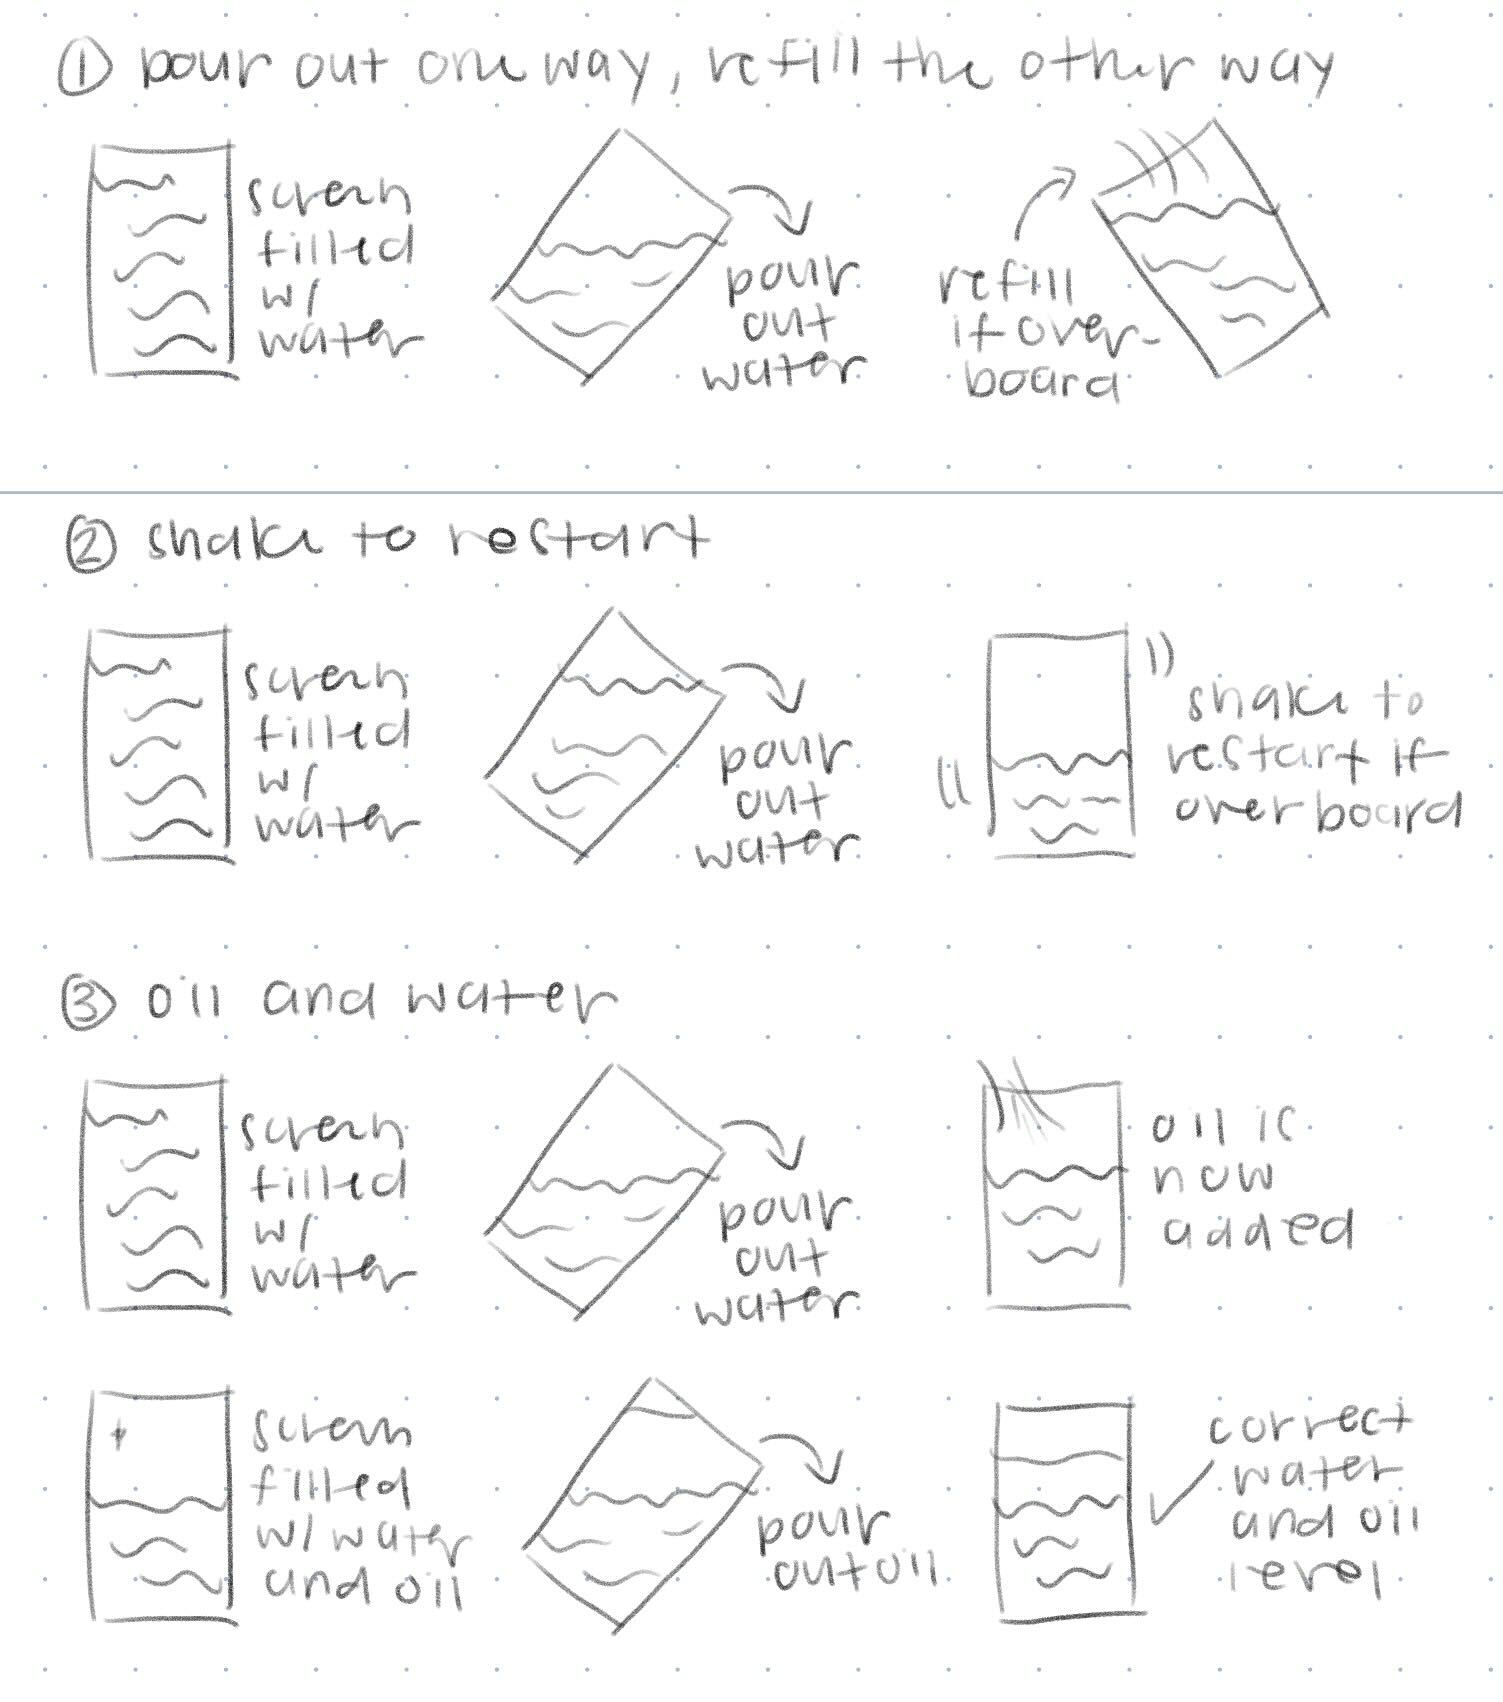 ① pour out one way, refill the other way
screen
filled
w/
water
pour
out
water
refill
if over-
board
② shake to restart
screen
filled
w/
water
pour
out
water
shake to
restart if
overboard
③ oil and water
screen
filled
w/
water
pour
out
water
oil is
now
added
screen
filled
w/ water
and oil
pour
out oil
correct
water
and oil
level